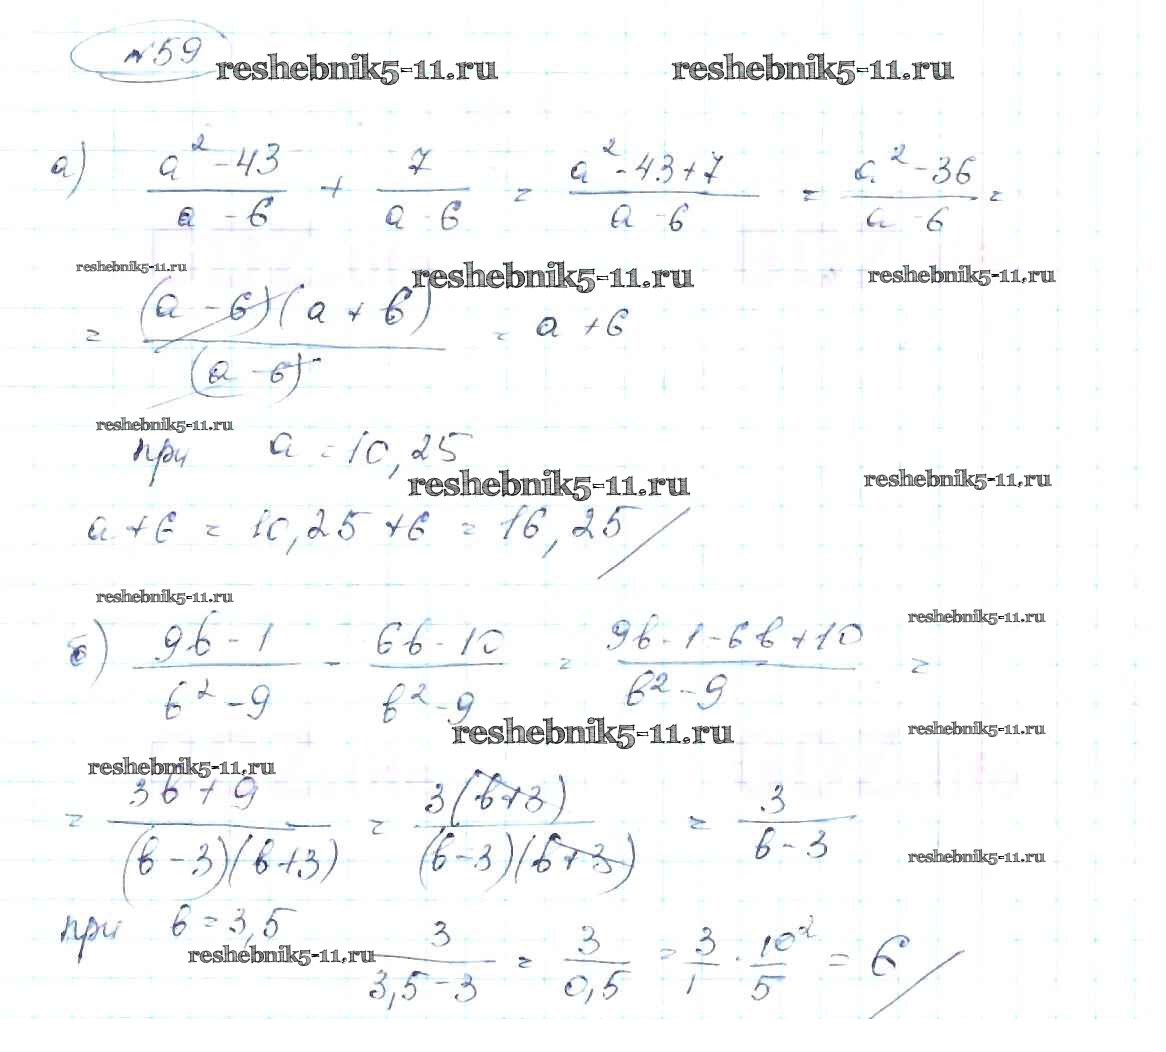 №59
reshebnik5-11.ru reshebnik5-11.ru
а) (a² - 43)/(a - 6) + 7/(a - 6) = (a² - 43 + 7)/(a - 6) = (a² - 36)/(a - 6) =
reshebnik5-11.ru reshebnik5-11.ru reshebnik5-11.ru
= (a - 6)(a + 6)/(a - 6) = a + 6
reshebnik5-11.ru
при a = 10,25
reshebnik5-11.ru reshebnik5-11.ru
a + 6 = 10,25 + 6 = 16,25
reshebnik5-11.ru reshebnik5-11.ru
б) (9b - 1)/(b² - 9) - (6b - 10)/(b² - 9) = (9b - 1 - 6b + 10)/(b² - 9) =
reshebnik5-11.ru reshebnik5-11.ru
reshebnik5-11.ru
= (3b + 9)/((b - 3)(b + 3)) = 3(b + 3)/((b - 3)(b + 3)) = 3/(b - 3)
reshebnik5-11.ru
при b = 3,5 3/(3,5 - 3) = 3/0,5 = 3/1 · 10²/5 = 6
reshebnik5-11.ru